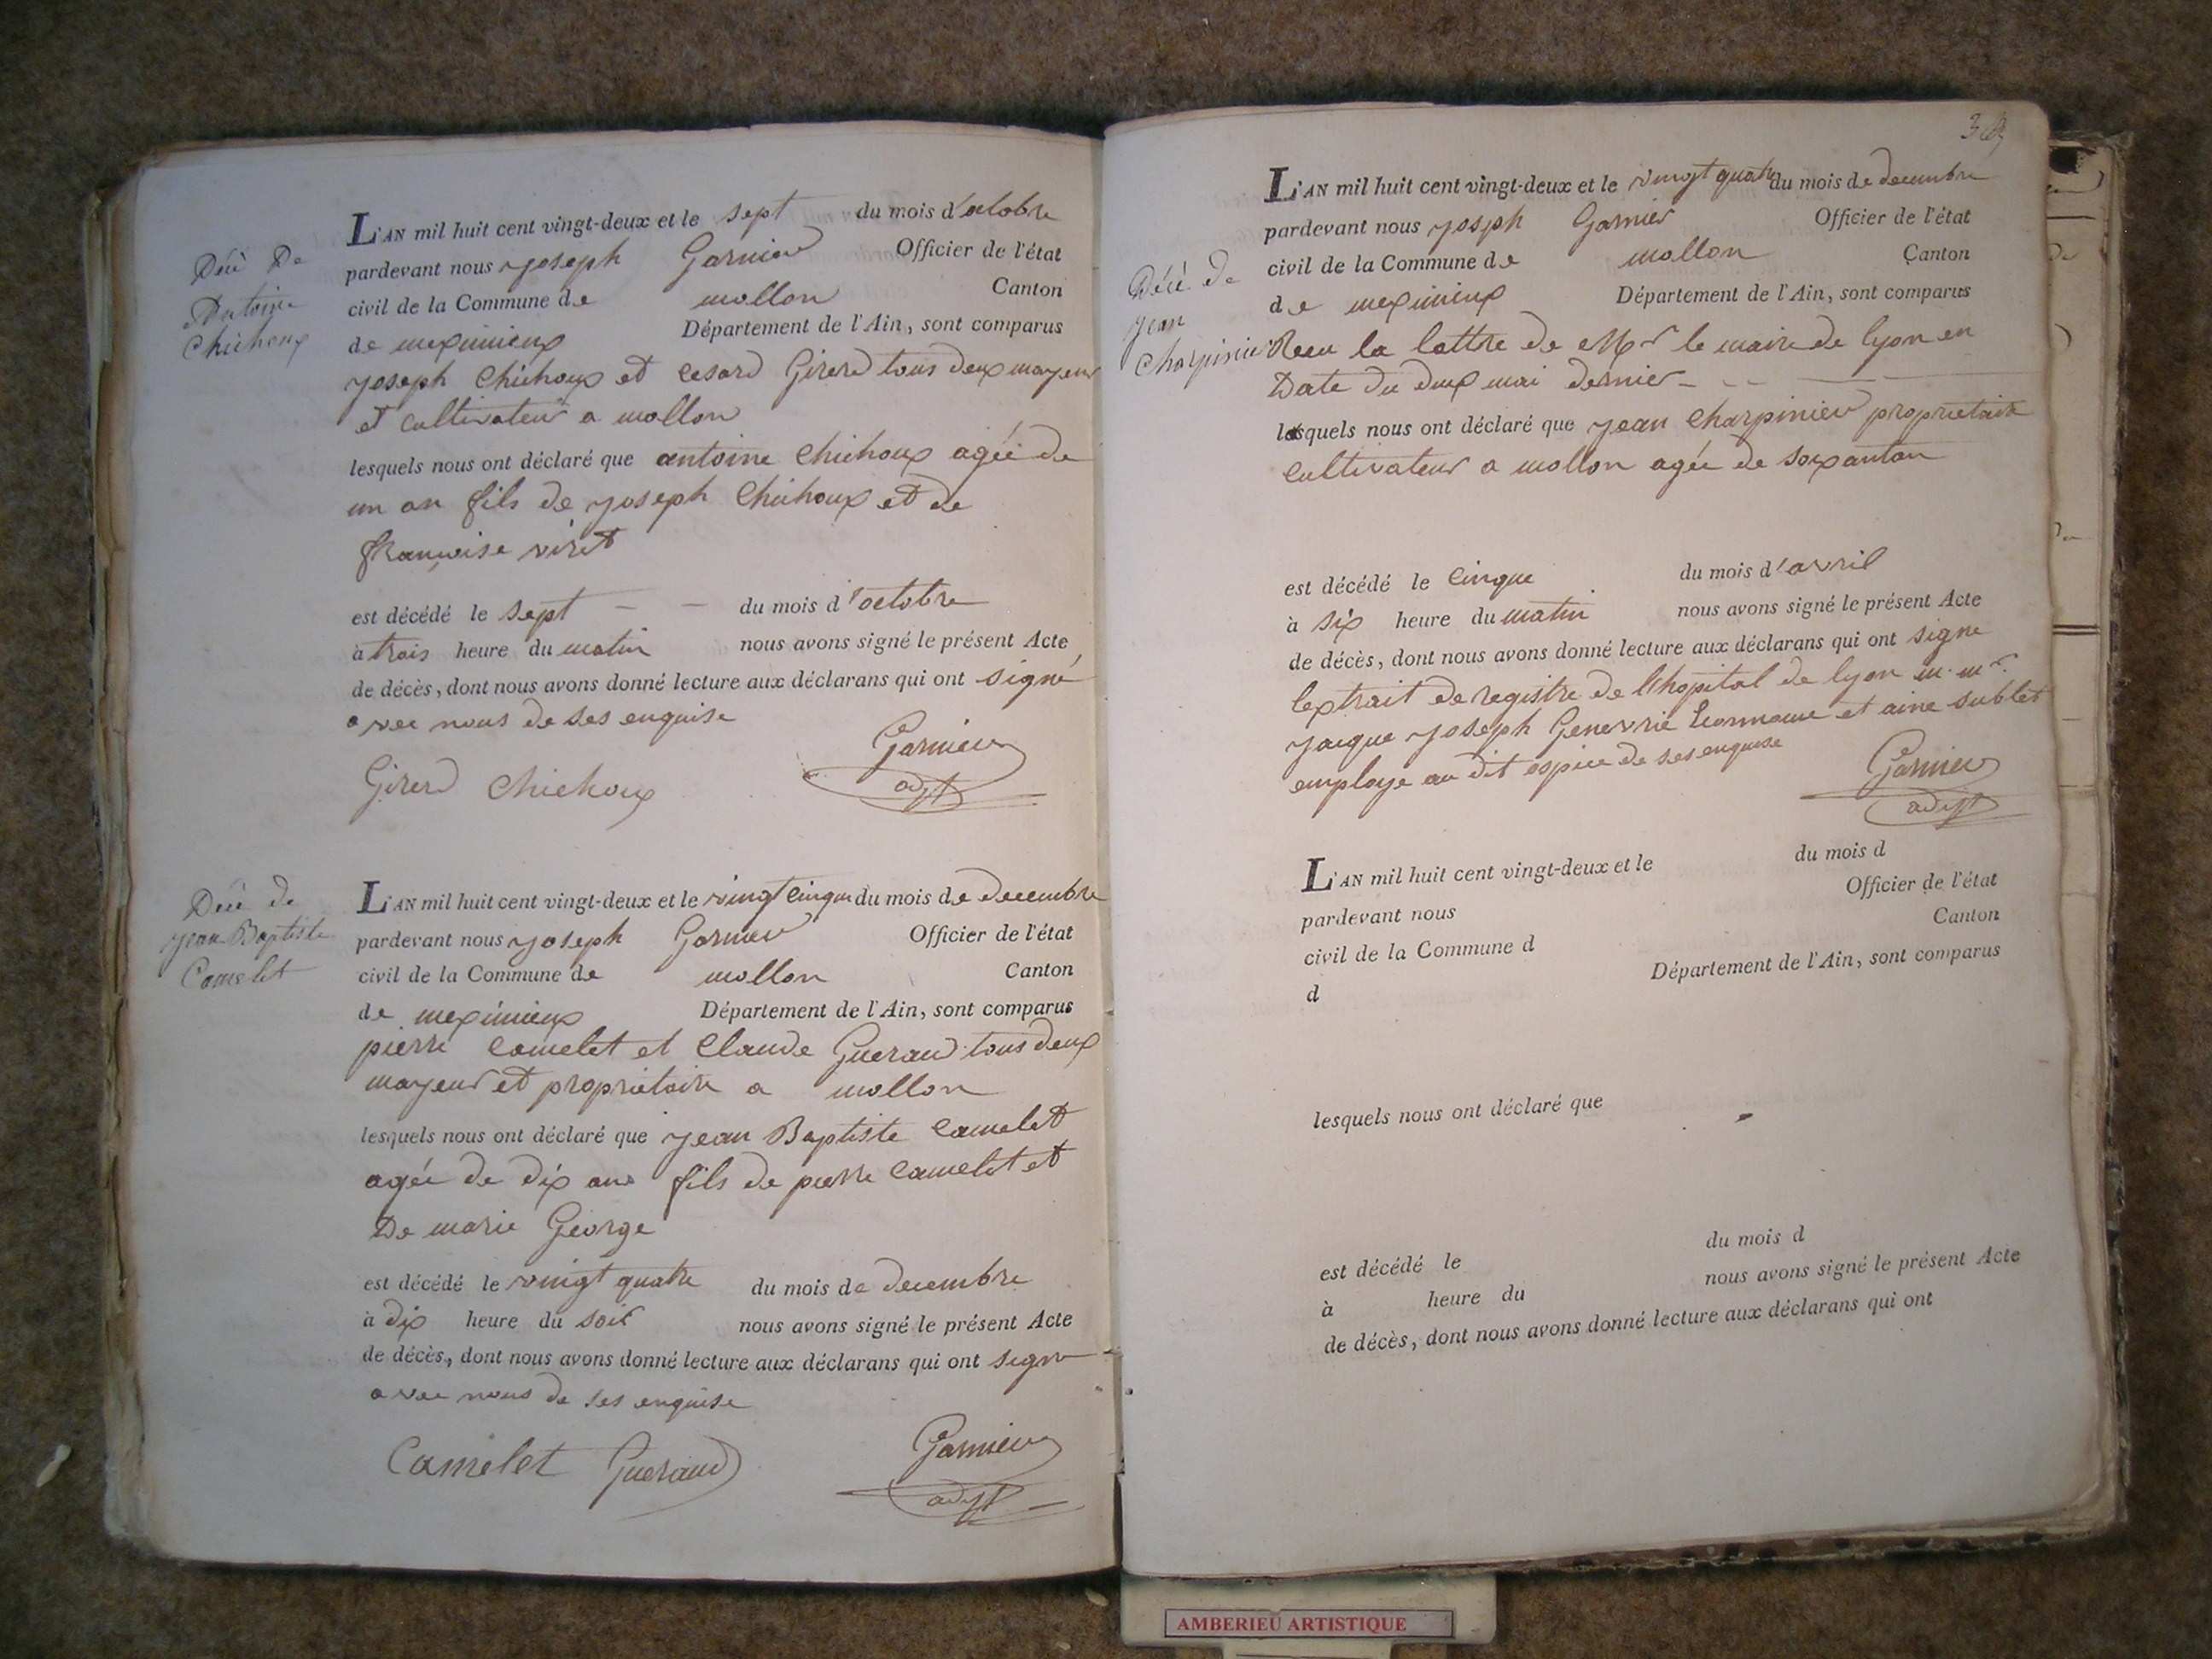 Décè De
Antoine
Chichoux
L'AN mil huit cent vingt-deux et le sept du mois d'octobre
pardevant nous joseph Garnier Officier de l'état
civil de la Commune de mollon Canton
de meximieux Département de l'Ain, sont comparus
joseph Chichoux et cesard Girerd tous deux mayeur
et cultivateur a mollon
lesquels nous ont déclaré que antoine Chichoux agée de
un an fils de joseph Chichoux et de
francoise viret
est décédé le sept du mois d'octobre
à trois heure du matin nous avons signé le présent Acte
de décès, dont nous avons donné lecture aux déclarans qui ont signé
avec nous de ses enquise
Girerd Chichoux Garnier
adjt
Décè de
jean Baptiste
Camelet
L'AN mil huit cent vingt-deux et le vingt cinque du mois de decembre
pardevant nous joseph Garnier Officier de l'état
civil de la Commune de mollon Canton
de meximieux Département de l'Ain, sont comparus
pierre camelet et Claude Gueraud tous deux
mayeur et proprietaire a mollon
lesquels nous ont déclaré que jean Baptiste Camelet
agée de dix ans fils de pierre Camelet et
De marie George
est décédé le vingt quatre du mois de decembre
à dix heure du soir nous avons signé le présent Acte
de décès, dont nous avons donné lecture aux déclarans qui ont signe
avec nous de ses enquise
Camelet Gueraud Garnier
adjt
Décè de
jean
Charpinier
L'AN mil huit cent vingt-deux et le vingt quatre du mois de decembre
pardevant nous joseph Garnier Officier de l'état
civil de la Commune de mollon Canton
de meximieux Département de l'Ain, sont comparus
Recu la lattre de Mr le maire de lyon en
Date du deux mai dernier
lesquels nous ont déclaré que jean Charpinier proprietaire
Cultivateur a mollon agée de soixantan
est décédé le cinque du mois d'avril
à six heure du matin nous avons signé le présent Acte
de décès, dont nous avons donné lecture aux déclarans qui ont signe
lextrait de registre de lhopital de lyon m.mr.
jacque joseph et aine sublet
employe au dit ospice de ses enquise
Garnier
adjt
L'AN mil huit cent vingt-deux et le du mois d
pardevant nous Officier de l'état
civil de la Commune d Canton
d Département de l'Ain, sont comparus
lesquels nous ont déclaré que
est décédé le du mois d
à heure du nous avons signé le présent Acte
de décès, dont nous avons donné lecture aux déclarans qui ont
AMBERIEU ARTISTIQUE